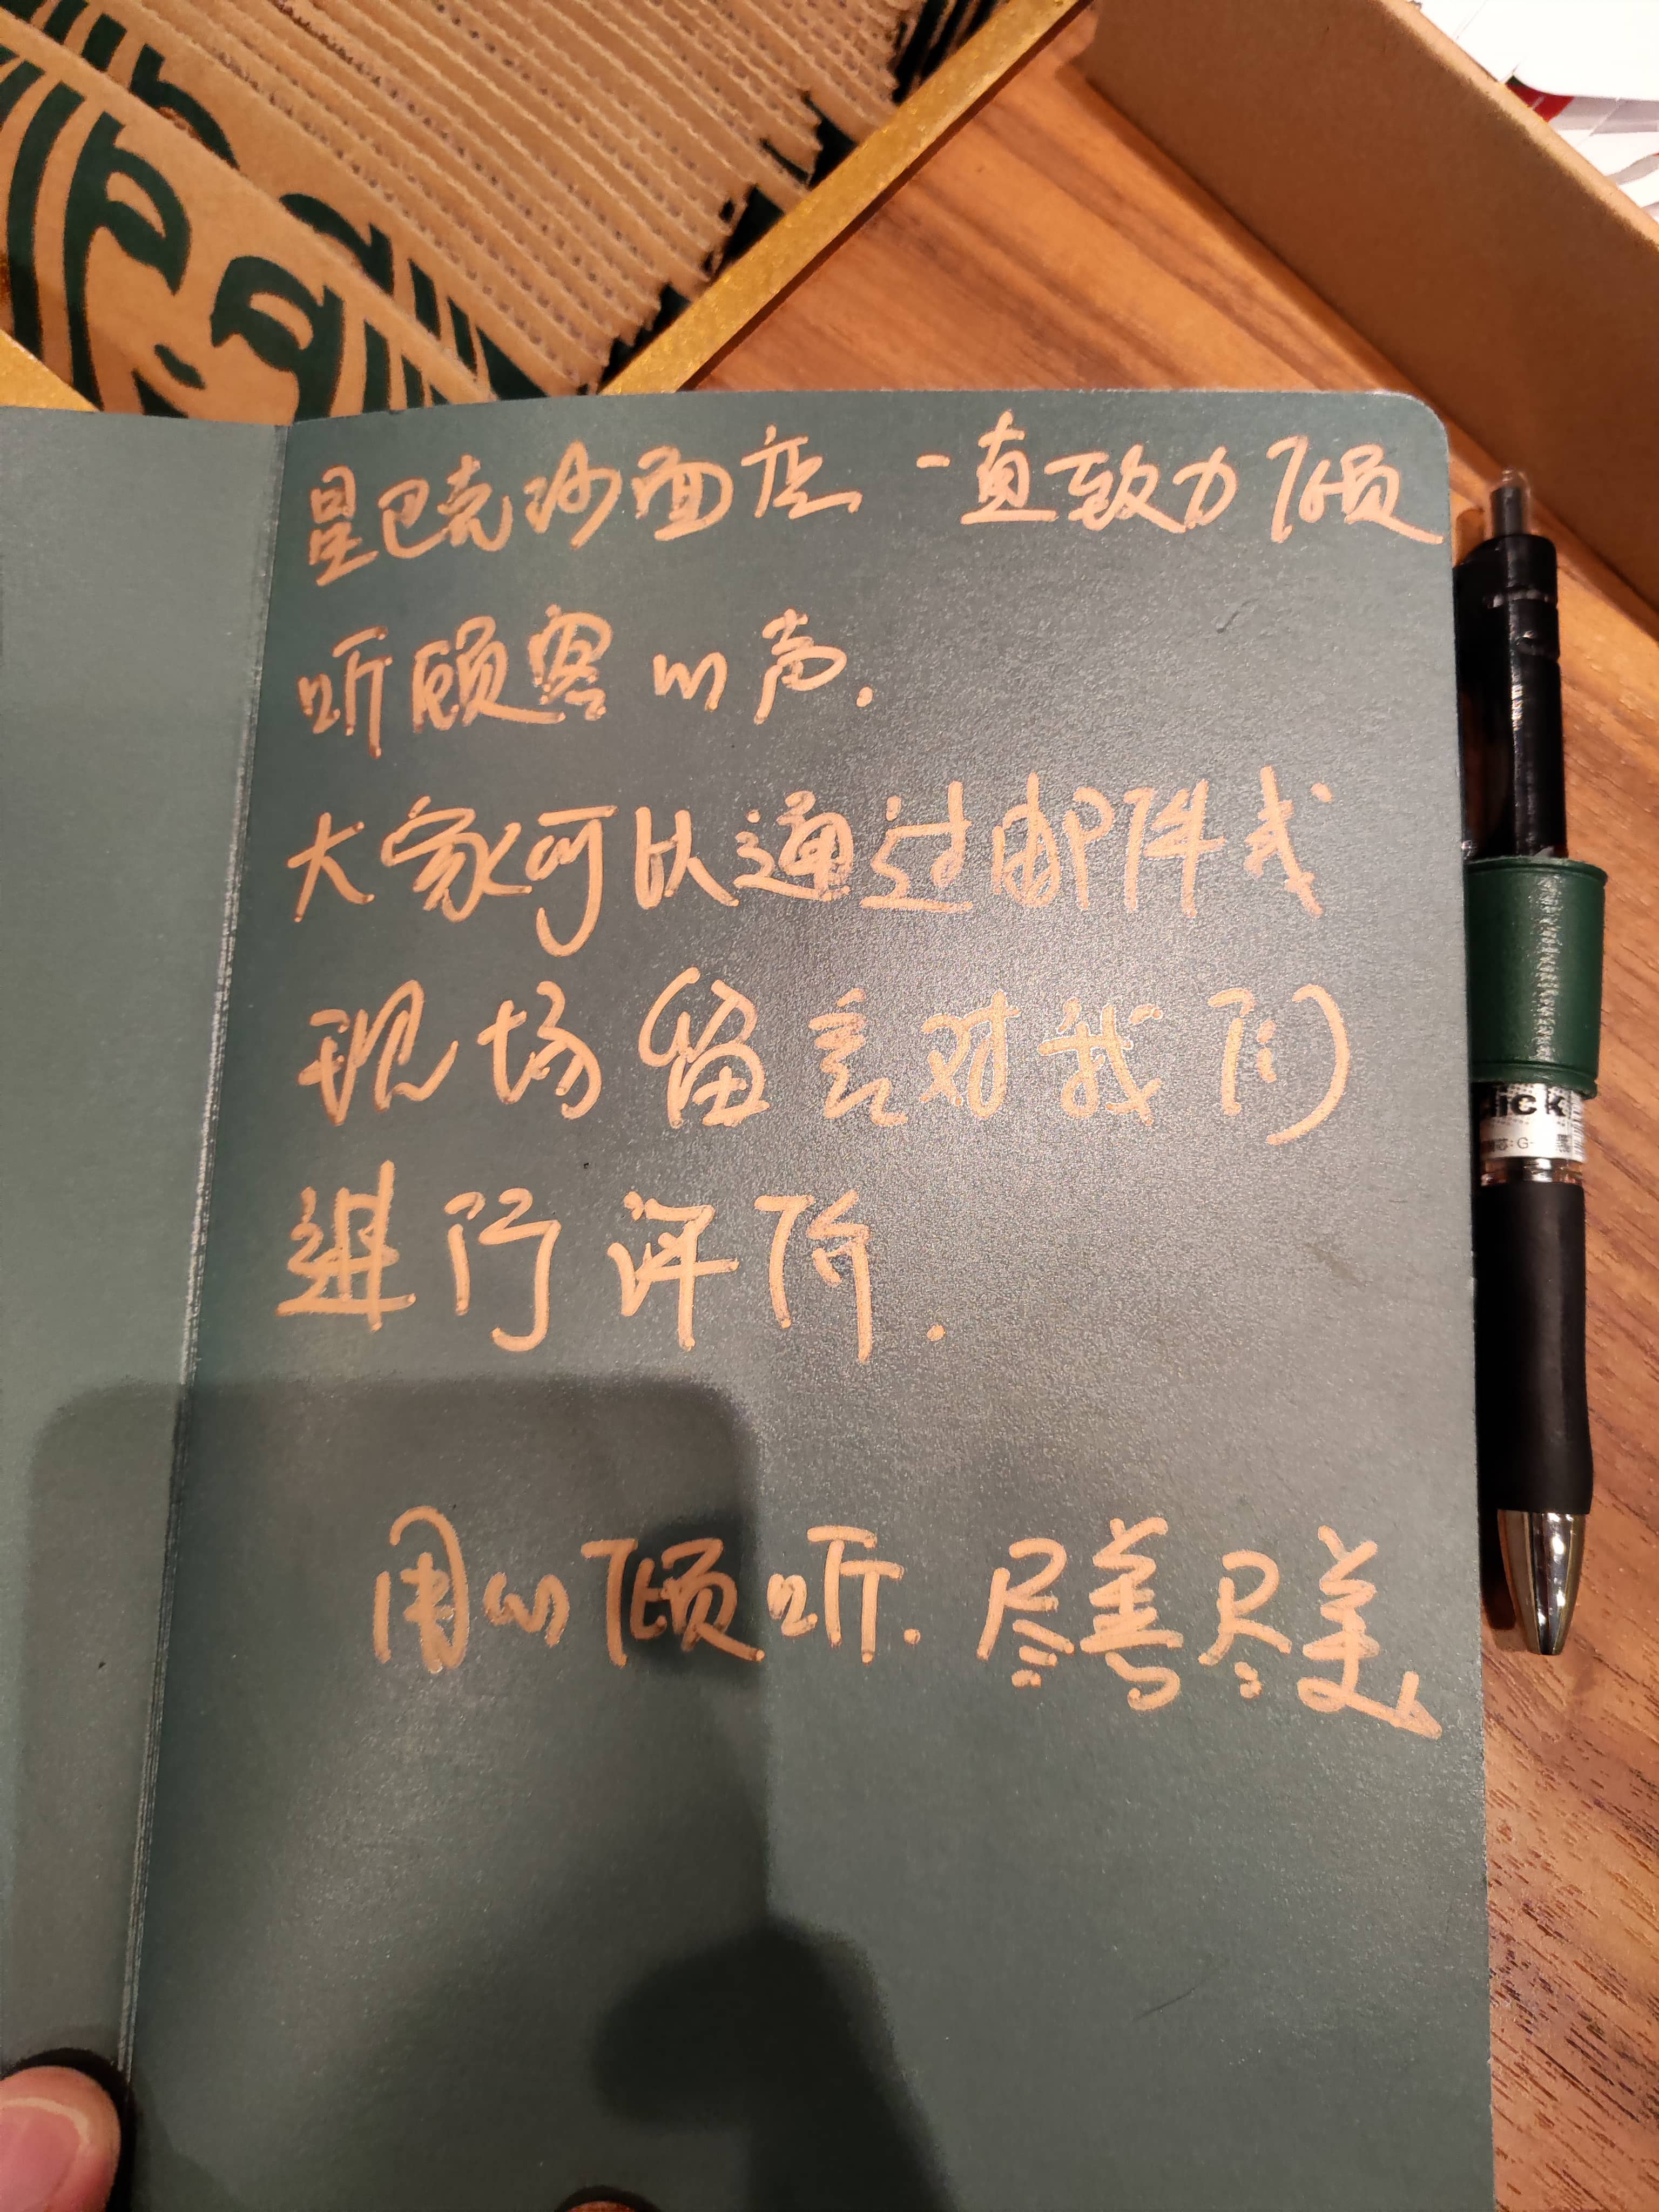 星巴克沙面店 一直致力倾
听顾客心声.
大家可以通过邮件或
现场留言对我们
进行评价.
用心倾听.尽善尽美
lick
芯:G-